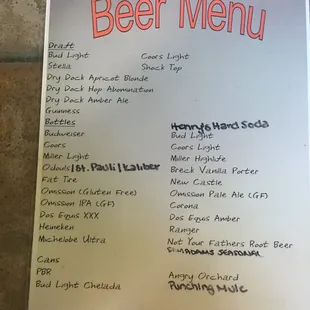 Beer Menu
Draft
Bud Light Coors Light
Stella Shock Top
Dry Dock Apricot Blonde
Dry Dock Hop Abomination
Dry Dock Amber Ale
Guinness
Bottles Henry's Hard Soda
Budweiser Bud Light
Coors Coors Light
Miller Light Miller Highlife
Odouls/St. Pauli/Kaliber Breck Vanilla Porter
Fat Tire New Castle
Omission (Gluten Free) Omission Pale Ale (GF)
Omission IPA (GF) Corona
Dos Equis XXX Dos Equis Amber
Heineken Ranger
Michelobe Ultra Not Your Fathers Root Beer
Sam ADAMS SEASONAL
Cans
PBR Angry Orchard
Bud Light Chelada Punching Mule